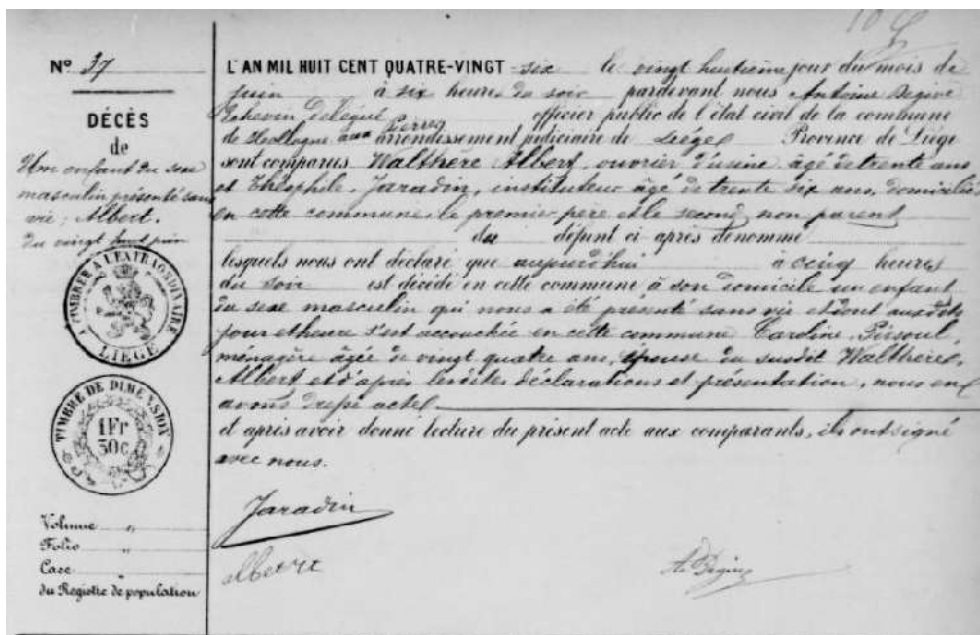 Nº 37
DÉCÈS
de
Un enfant du sexe
masculin présenté sans
vie, Albert.
du vingt huit juin
TIMBRE A L'EXTRAORDINAIRE
LIÈGE
TIMBRE DE DIMENSION
1 Fr
30 c
Volume "
Folio "
Case "
du Registre de population
L'AN MIL HUIT CENT QUATRE-VINGT-six le vingt huitième jour du mois de
juin à six heures du soir pardevant nous Antoine
Echevin délégué officier public de l'état civil de la commune
de Hollogne aux Pierres arrondissement judiciaire de Liège Province de Liège
sont comparus Walthère Albert, ouvrier d'usine âgé de trente ans
et Théophile Jaradin, instituteur âgé de trente six ans, domiciliés
en cette commune, le premier père et le second non parent
du défunt ci après dénommé
lesquels nous ont déclaré que aujourd'hui à cinq heures
du soir est décédé en cette commune à son domicile un enfant
du sexe masculin qui nous a été présenté sans vie et dont aux dits
jour et heure s'est accouchée en cette commune Caroline
ménagère âgée de vingt quatre ans, épouse du susdit Walthère
Albert et d'après les dites déclarations et présentation, nous en
avons dressé acte
et après avoir donné lecture du présent acte aux comparants, ils ont signé
avec nous.
Jaradin
albert